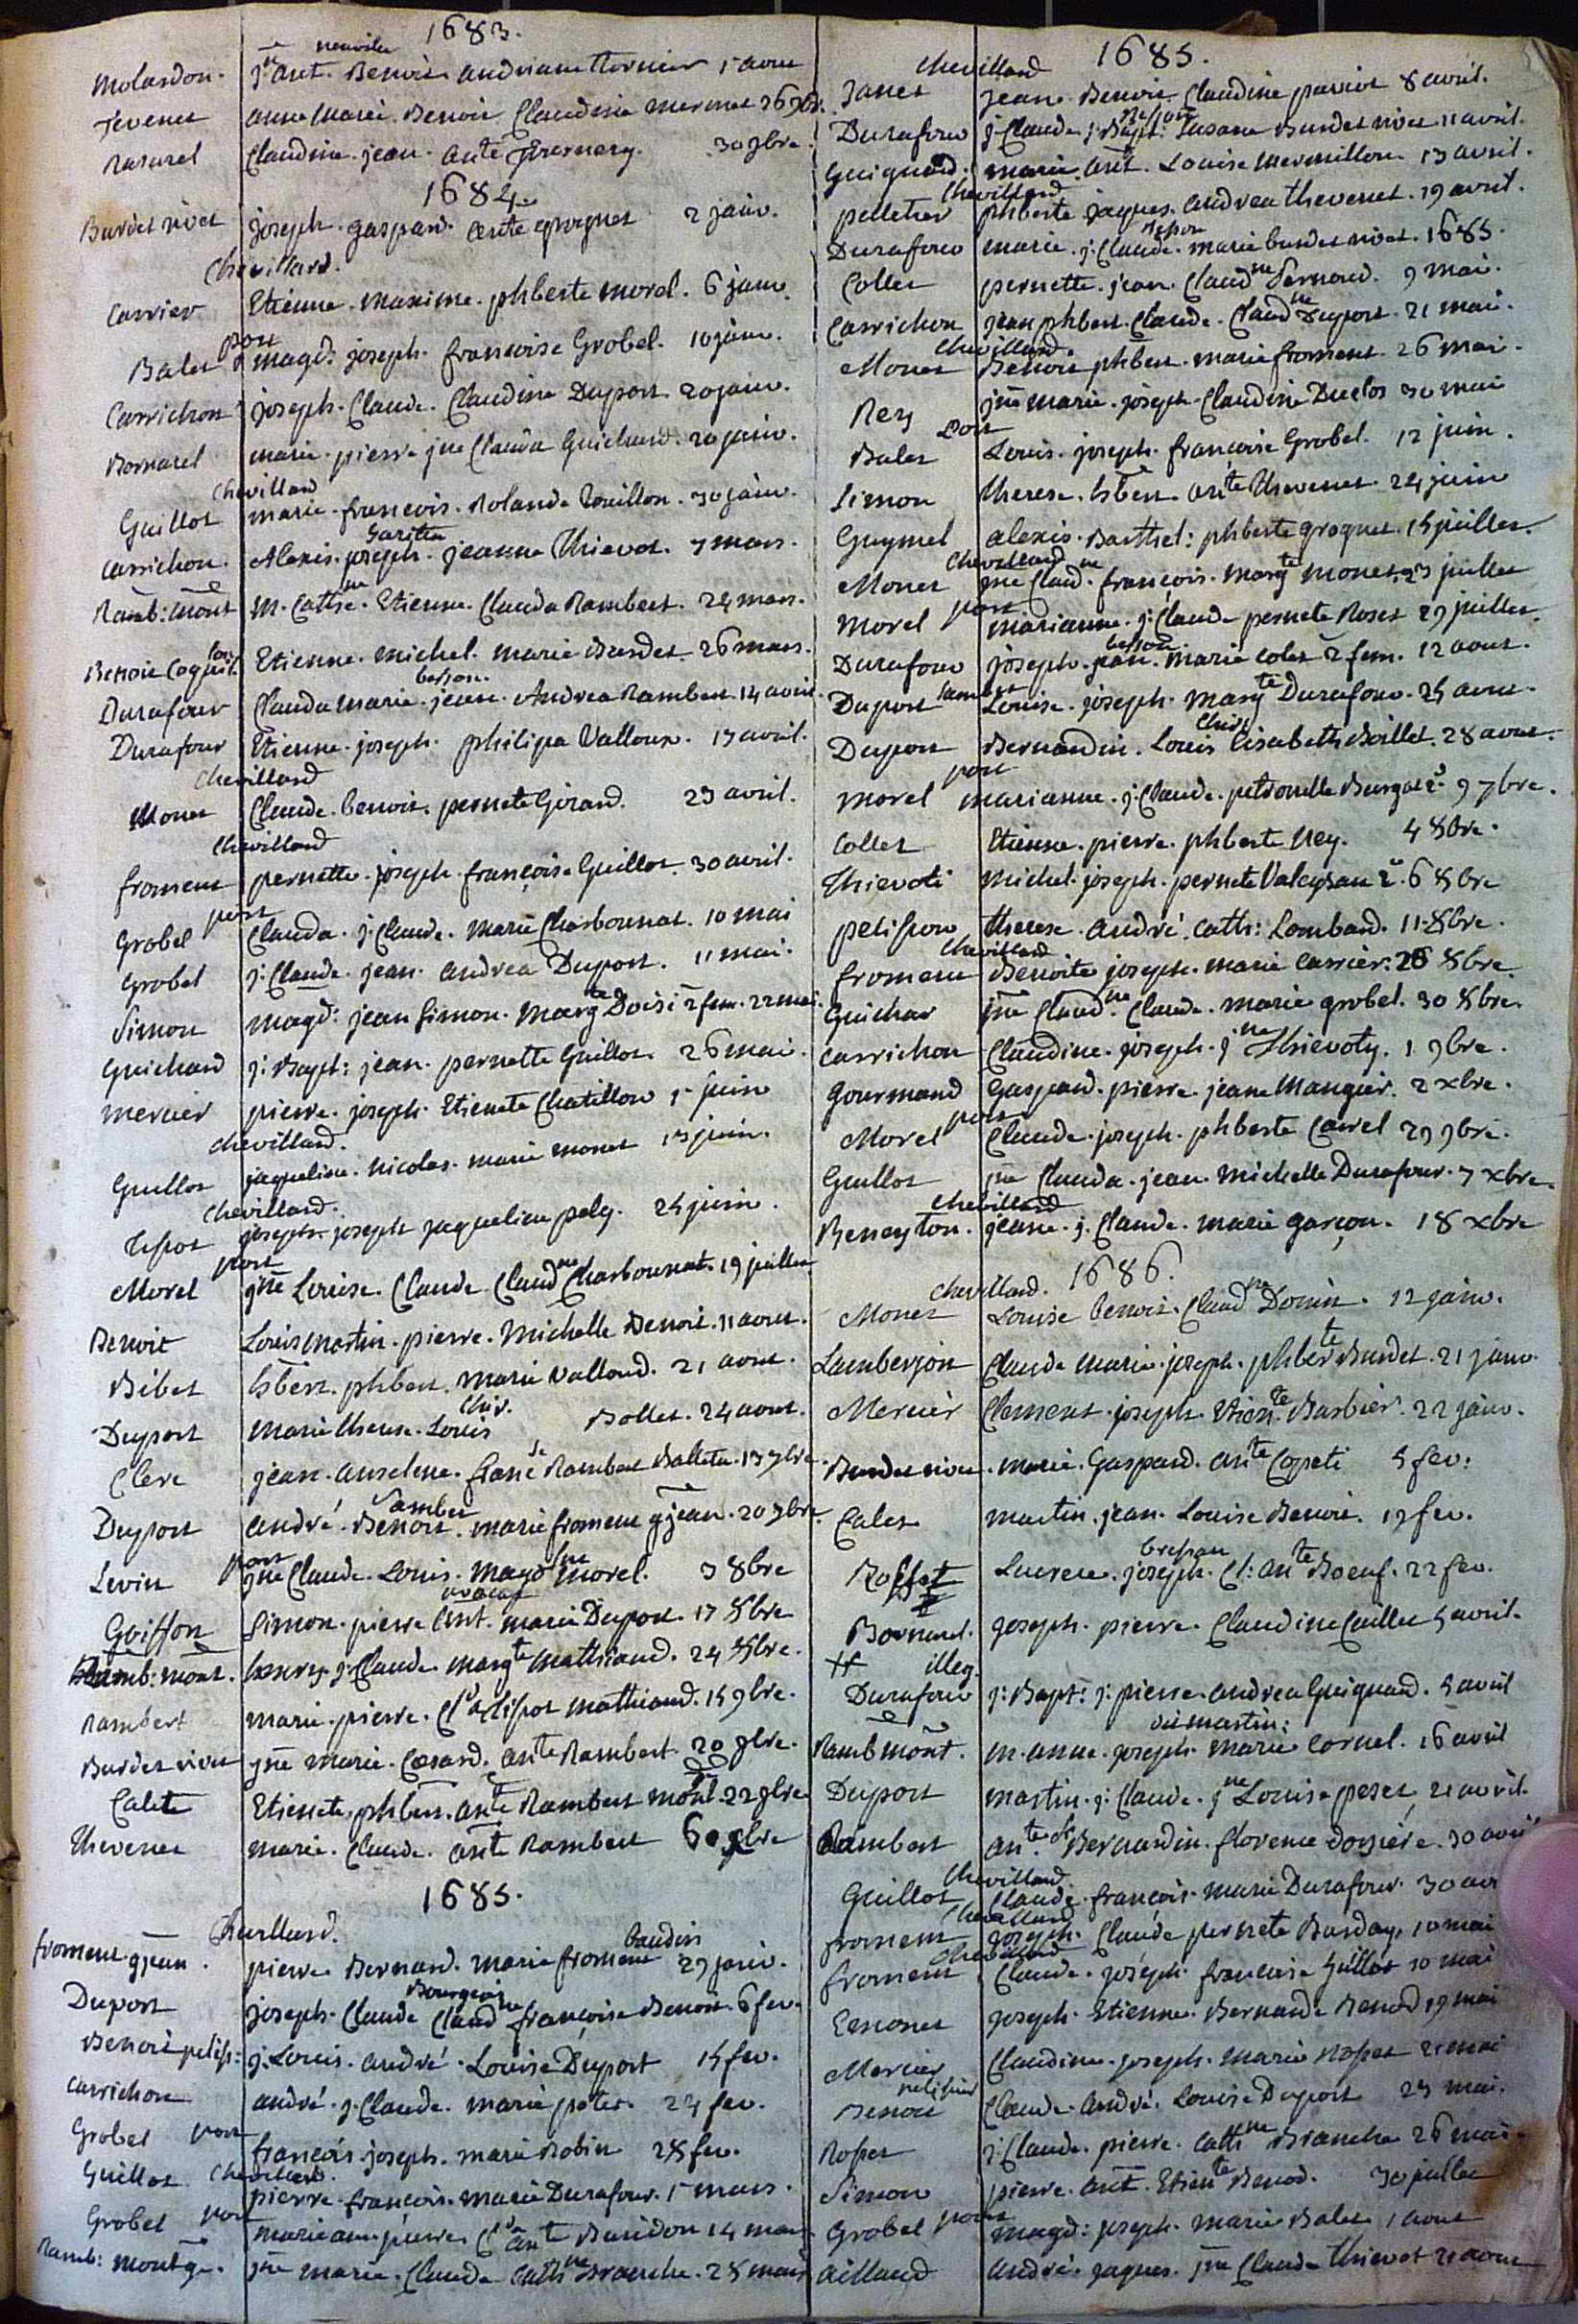 1683.
neuville
Molardon. jne ant. Benoit andriane Mornier 5 aout
Jevenet anne Marie. Benoit Claudine Mermet 26 7bre.
Ravarel Claudine. jean. ante 30 9bre.
1684.
Burdet rivet joseph. gaspard. ante grognet 2 janv.
Chevillard.
Carrier Etienne. maxime. phberte morel. 6 janv.
port
Balet magd: joseph. francoise Grobel. 10 janv.
Carrichon joseph. Claude. Claudine Duport 20 janv.
Bornarel marie. pierre jne Clauda Guichard. 20 janv.
Chevillard
Guillot marie. francois. Rolande Touillon. 30 janv.
Carrichon. Alexis. joseph. jeanne Thievot. 7 mars.
Ramb: mont M. Cathne. Etienne. Clauda Rambert. 24 mars.
Benoit Coquil. Etienne. michel. marie Burdet. 26 mars.
besson.
Durafour Clauda marie. jean. Andrea Rambert 14 avril.
Durafour Etienne. joseph. philipa Valloux. 17 avril.
Chevillard
Monet Claude. benoit. pernete Girard. 23 avril.
Chevillard
froment pernette. joseph. françoise Guillot. 30 avril.
port
Grobel Clauda. j: Claude. Marie Charbonnat. 10 mai
Grobel j: Claude. jean. andrea Duport. 11 mai.
Simon magd: jean Simon. Margte Doisi 2 fem. 22 mai.
Guichard j: Bapt: jean. pernette Guillot. 26 mai.
mercier pierre. joseph. Etienete Chatillon 5 juin
Chevillard.
Guillot jaqueline. Nicolas. marie monet 15 juin.
Chevillard.
Tissot joseph. joseph jaqueline pely. 24 juin.
port
Morel jne Louise. Claude Claudne Charbonnat. 19 juillet
Benoit Louis martin. pierre. Michelle Benoit. 11 aout.
Bibet hbert. phbert. Marie Vallond. 21 aout.
Chir.
Duport Marie Therese. Louis Bollet. 24 aout.
Clere jean. anselme. francse Rambert Balleta. 13 7bre.
Lambert
Duport andré. Benoit. marie froment gjean. 20 7bre
port
Levin jne Claude. Louis. Magdne Morel. 3 8bre
avocat
Goiffon Simon. pierre Ant. marie Duport. 17 8bre
Ramb: mont. henry. j: Claude. margte Mathiand. 24 8bre.
Rambert marie. pierre. Cl. Tissot Mathiand. 15 9bre.
Burdet rivet jne Marie. Cæsard. ante Rambert 20 9bre.
Calete Etienete, phbert. ante Rambert mont. 22 9bre
Thevenet marie. Claude. ante Rambert 9bre
1685.
Chevillard.
froment gjean. pierre Bernard. marie froment baudin 29 janv.
Bourgeois
Duport joseph. Claude Claud françoise Benoit. 6 fev.
Benoit peliss: j. Louis. andré. Louise Duport 15 fev.
Carrichon andré. j. Claude. marie potet. 24 fev.
Grobel port françois. joseph. marie Robin 28 fev.
Guillot Chevillard. pierre. françois. marie Durafour. 5 mars.
Grobel port marie anne. pierre ante Baridon 14 mars
Ramb: montg. jne marie. Claude Cathne Branche. 28 mars
1685.
Chevillard
Janet jean Benoit. Claudine pariot 8 avril.
Besson
Durafour j: Claude. j: Bapt: Susane Burdet rivet. 11 avril.
Guignard. marie. ant. Louise Mermillon. 13 avril.
Chevillard
pelletier phberte jaques. andrea thevenet. 19 avril.
besson
Durafour marie. j: Claude. marie burdet rivet. 1685.
Collet pernette. jean. Claudne Bernard. 9 mai.
Carrichon jean phbert. Claude. Claudne Duport. 21 mai.
Chevillard.
Monet Benoit phbert. marie froment. 26 mai.
Rey jne marie. joseph. Claudine Duclos 30 mai
port
Balet Louis. joseph. françoise Grobel. 12 juin.
Simon therese. hbert. ante Thevenet. 24 juin
Guymel alexis. Barthel: phberte grognet. 15 juillet.
Chevillard
Monet jne Claudne. francois. Margte monet. 23 juillet
Morel port marianne. j: Claude pernete Roset 29 juillet.
besson
Durafour joseph. jean. Marie Colet 2 fem. 12 aout.
Duport Lambert Louise. joseph. Margte Durafour. 25 aout.
Chir.
Duport Bernardin. Louis Elisabeth Boillet. 28 aout.
port
Morel marianne. j: Claude. petronille Burgat 2. 9 7bre.
Collet Etienne. pierre. phberte Rey. 4 8bre.
Thievoti Michel. joseph. pernete Valeysan 2. 6 8bre
pelisson therese. André. Cath: Lombard. 11 8bre.
Chevillard
froment Benoite joseph. marie Carrier. 26 8bre
Guichar jne Claudne. Claude. marie grobel. 30 8bre.
Carrichon Claudine. joseph. jne Thievoty. 1 9bre.
Gourmand Gaspard. pierre. jeane Mangier. 2 xbre.
port
Morel Claude. joseph. phberte Carrel 29 9bre.
Guillot jne Clauda. jean. Michelle Durafour. 7 xbre.
Chevillard
Beneyton. jeane. j. Claude. marie garçon. 18 xbre
1686.
Chevillard.
Monet Louise benoit. Claudne Donin. 12 janv.
Lamberjon Claude Marie. joseph. phberte Burdet. 21 janv.
Mercier Clement. joseph. Etiente Barbier. 22 janv.
Burdet rivet. marie. Gaspard. ante Copeti 5 fev.
Calet martin. jean. Louise Benoit. 19 fev.
bressan
Rosset Lucrece. joseph. Cl: ante Boeuf. 22 fev.
Bornarel. joseph. pierre. Claudine Caillet 5 avril.
# illeg.
Durafour j: Bapt: j: pierre. andrea Guignard. 5 avril
dit martin:
Ramb mont. M. anne. joseph. marie Cornel. 16 avril
Duport martin. j: Claude. jne Louise peset, 21 avril.
Rambert ante. Bernardin. florence dossiere. 30 avril
Chevillard.
Guillot Claude. françois. Marie Durafour. 30 avr
Chevillard
froment joseph. Claude pernete Burday, 10 mai
Chevillard
froment Claude. joseph. francoise Guillot 10 mai
Emonet joseph. Etienne. Bernarde Benod 19 mai
Mercier Claudine. joseph. Marie Rosset 21 mai
pelissier
Benoit Claude. André. Louise Duport 23 mai.
Rosset j: Claude. pierre. Cathne Branche 26 mai.
Simon pierre. ant. Etiente Benod. 30 juillet
Grobel port magd: joseph. Marie Balet 1 aout
aillaud André. jaques. jne Claude Thievot 21 aout